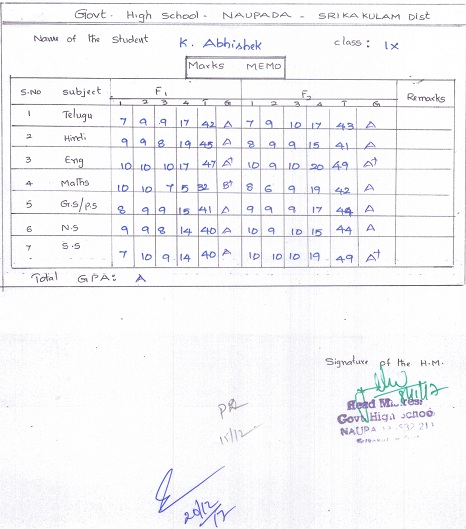 Govt. High School - NAUPADA - SRIKAKULAM Dist
Name of the Student K. Abhishek class: IX
Marks MEMO
S.No subject F1 F2 Remarks
1 2 3 4 T G 1 2 3 4 T G
1 Telugu 7 9 9 17 42 A 7 9 10 17 43 A
2 Hindi 9 9 8 19 45 A 8 9 9 15 41 A
3 Eng 10 10 10 17 47 A+ 10 9 10 20 49 A+
4 Maths 10 10 7 5 32 B+ 8 6 9 19 42 A
5 G.S/P.S 8 9 9 15 41 A 9 9 9 17 44 A
6 N.S 9 9 8 14 40 A 10 9 10 15 44 A
7 S.S 7 10 9 14 40 A 10 10 10 19 49 A+
Total GPA: A
Signature of the H.M.
Head
Govt High School
NAUPA
PR
15/12
20/12/17